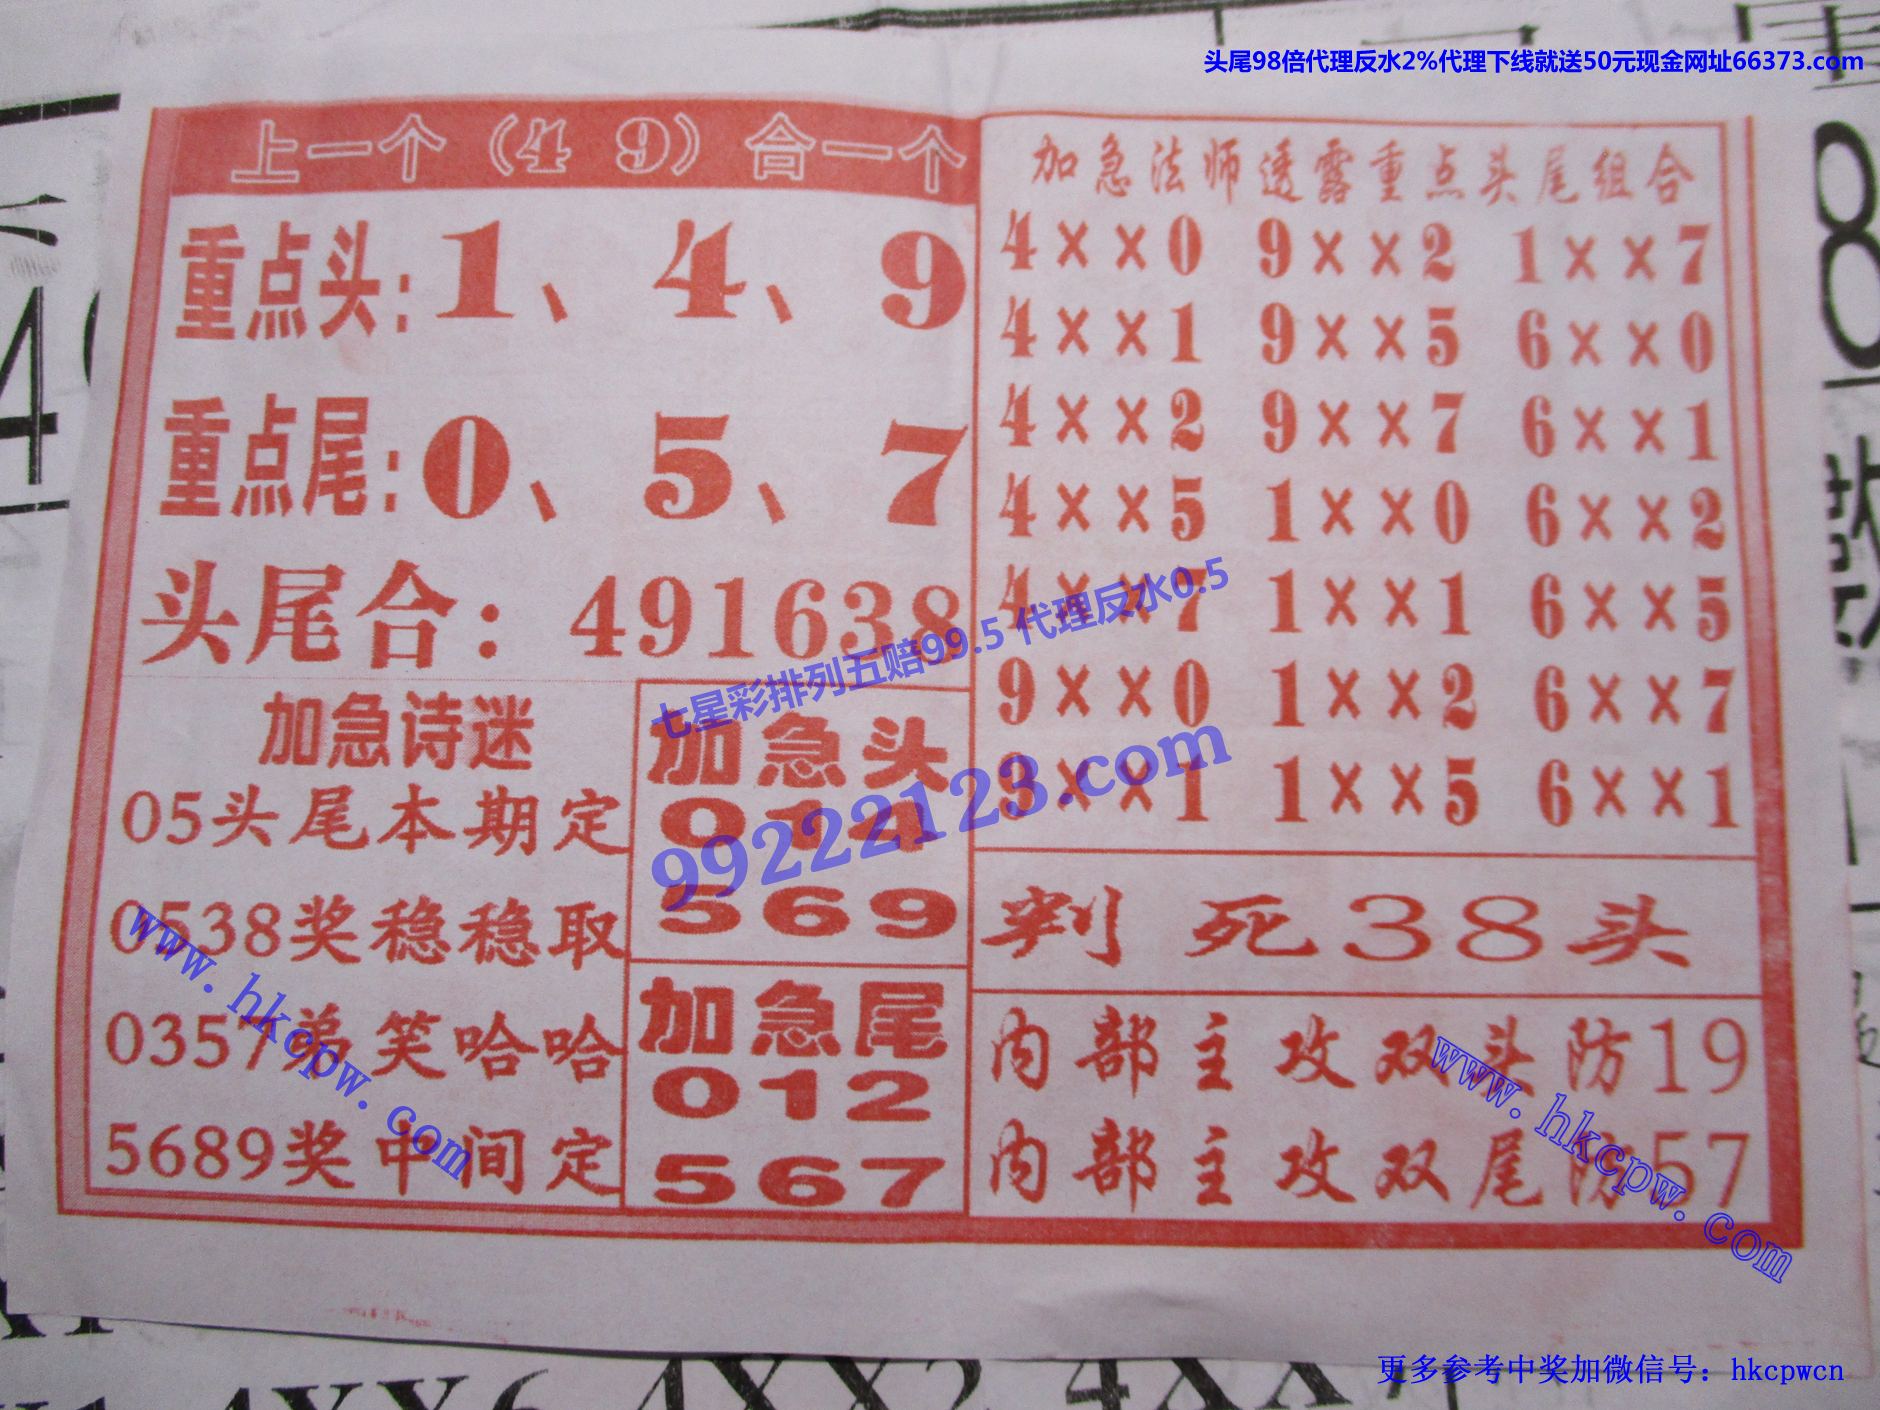 头尾98倍代理反水2%代理下线就送50元现金网址66373.com
上一个（4 9）合一个
重点头：1、4、9
重点尾：0、5、7
头尾合：491638
加急诗迷
05头尾本期定
0538奖稳稳取
0357弟笑哈哈
5689奖中间定
加急头
014
569
加急尾
012
567
加急法师透露重点头尾组合
4××0 9××2 1××7
4××1 9××5 6××0
4××2 9××7 6××1
4××5 1××0 6××2
4××7 1××1 6××5
9××0 1××2 6××7
3××1 1××5 6××1
判死38头
内部主攻双头防19
内部主攻双尾防57
七星彩排列五赔99.5 代理反水0.5
99222123.com
www.hkcpw.com
www.hkcpw.com
更多参考中奖加微信号：hkcpwcn